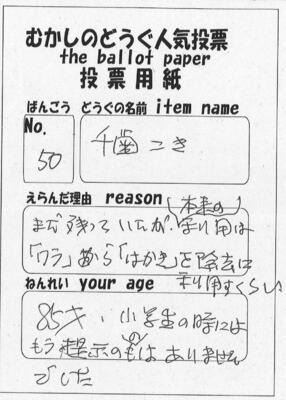 むかしのどうぐ人気投票
the ballot paper
投票用紙
ばんごう どうぐの名前 item name
No.
50
千歯こき
えらんだ理由 reason
本来の
まだ残っていたが、利用は
「ワラ」から「はかき」を除去に
利用すくらい
ねんれい your age
85才、小学生の時には
もう提示のものはありません
でした